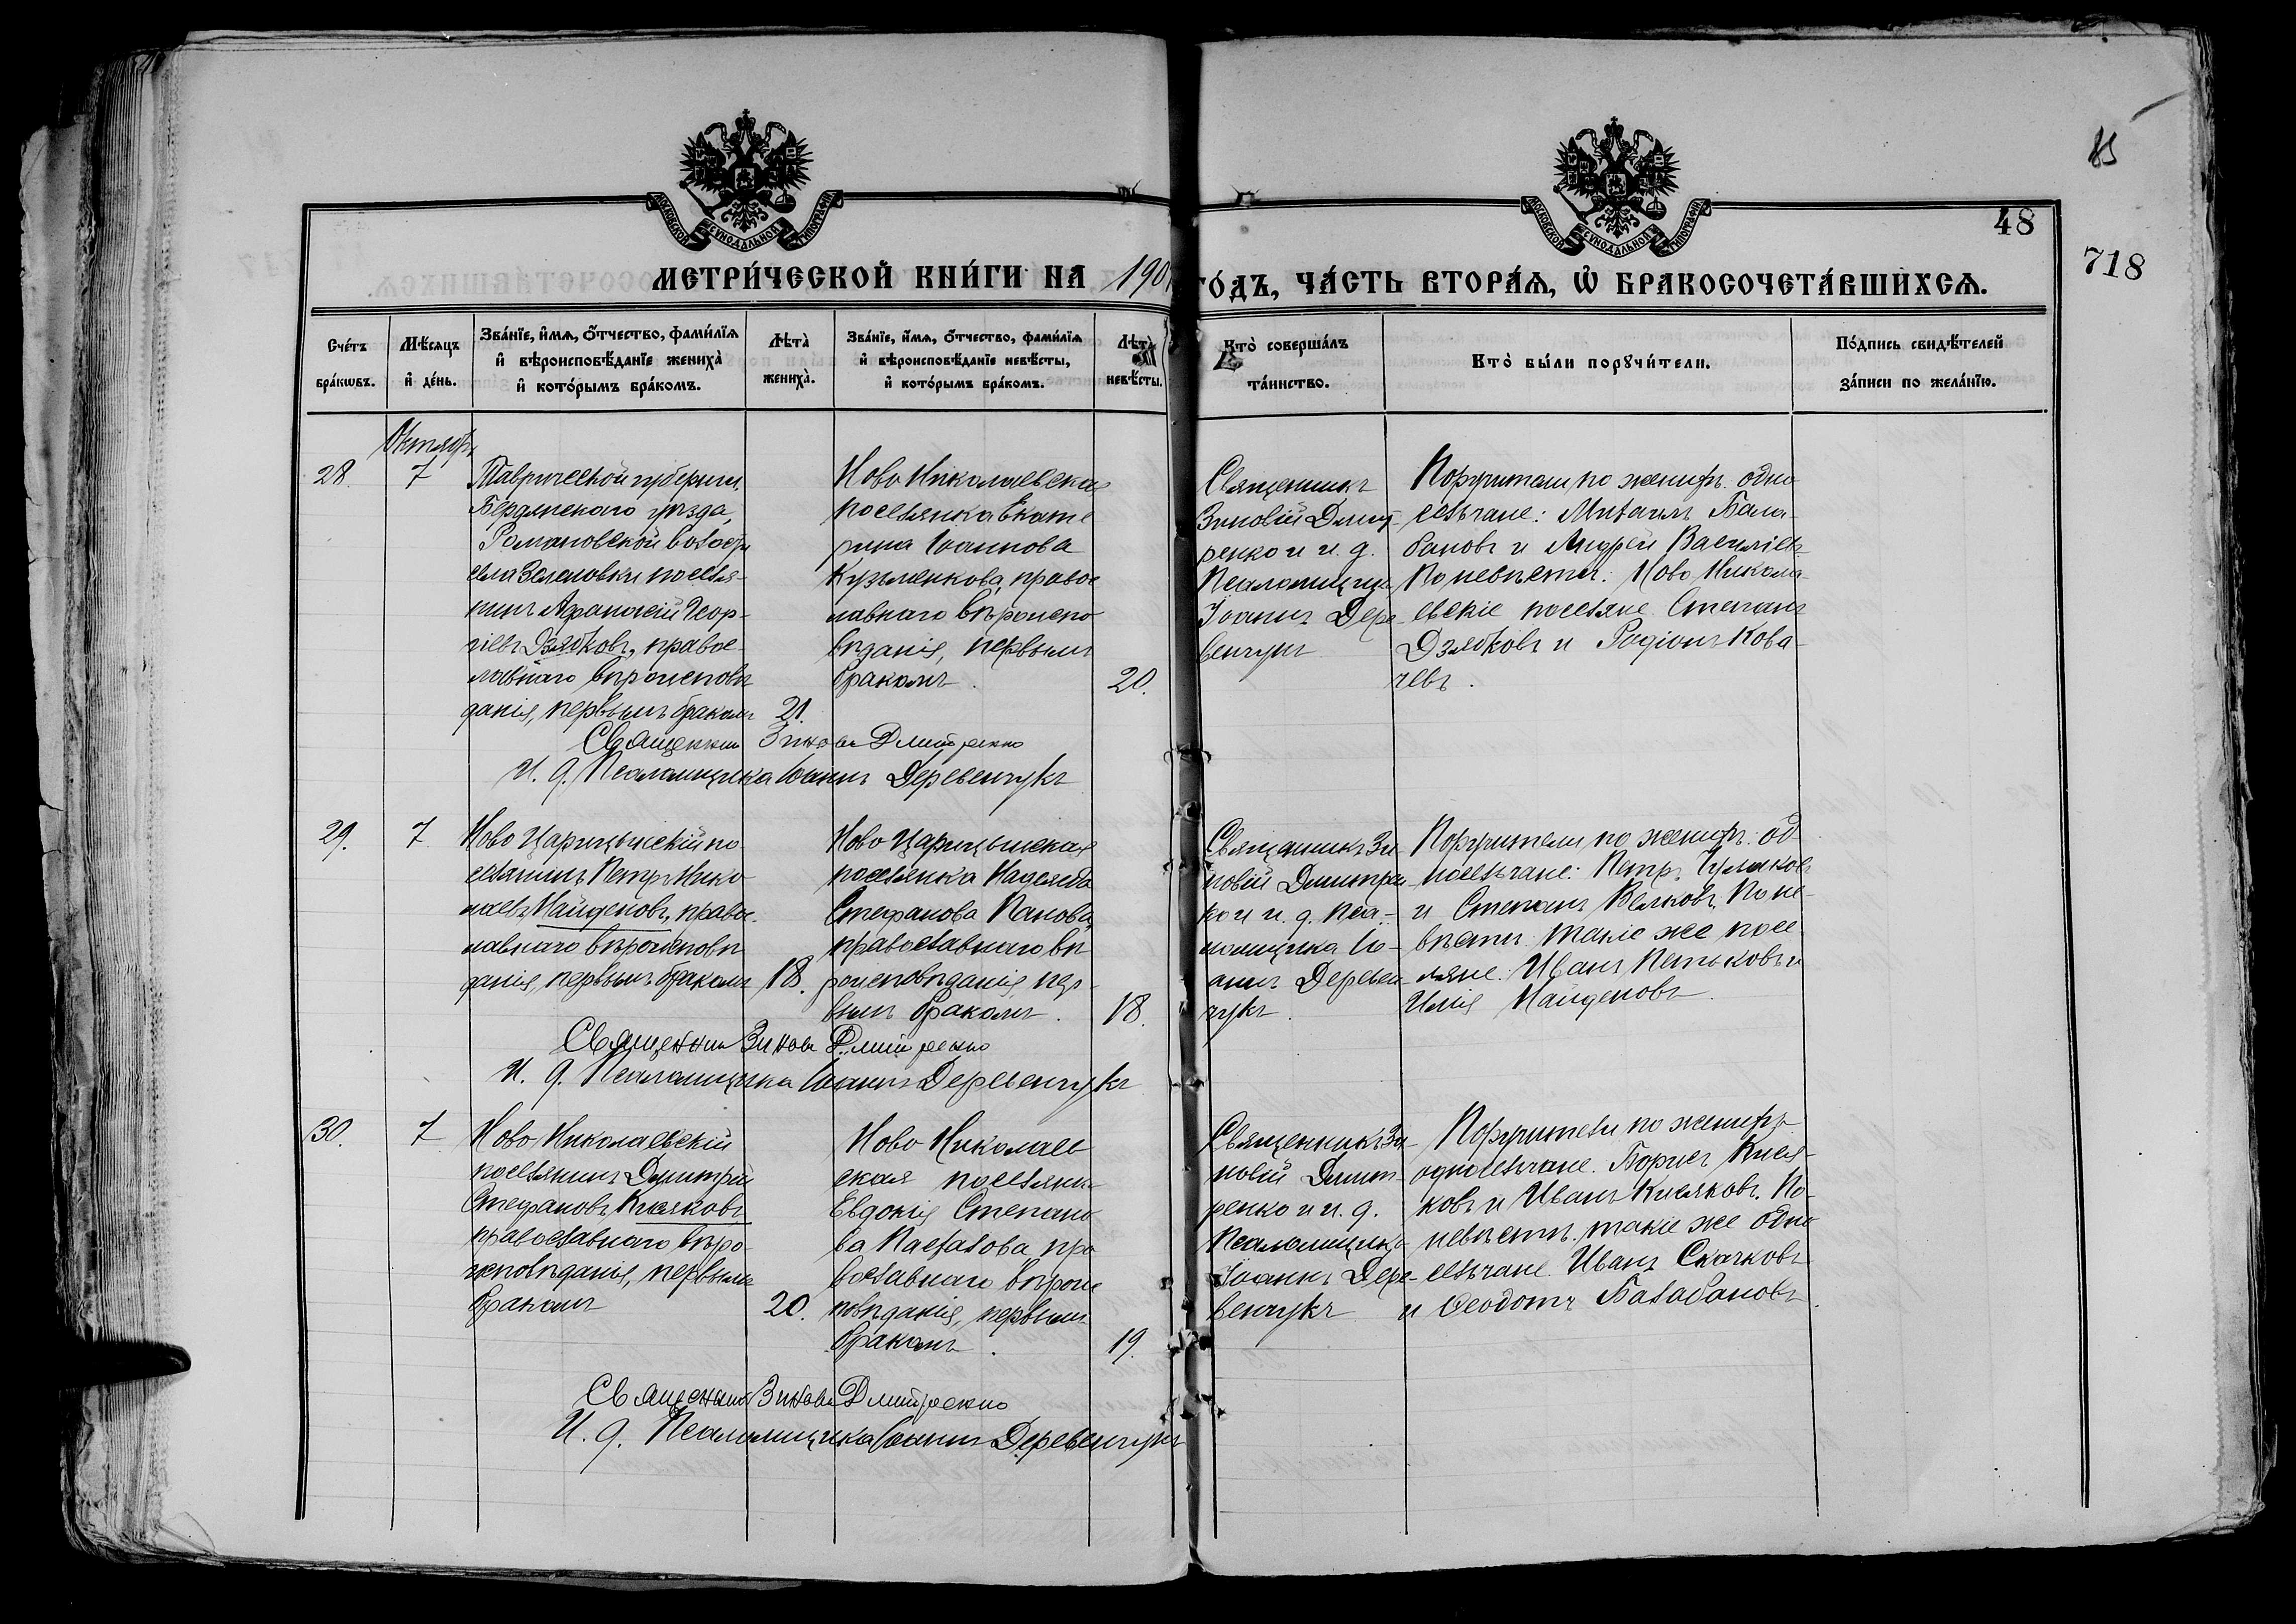 15
48
718
МЕТРИ́ЧЕСКОЙ КНИ́ГИ НА 190
ГО́ДЪ, ЧА́СТЬ ВТОРА́Ѧ, Ѽ БРАКОСОЧЕТА́ВШИХСѦ.
Сче́тъ бра́кѡвъ.
Мѣ́сяцъ и҆ де́нь.
Зва́нїе, и҆́мѧ, ѻ҆́тчество, фами́лїѧ
и҆ вѣроисповѣ́данїе жениха̀
и҆ кото́рымъ бра́комъ.
Лѣта̀ жениха̀.
Зва́нїе, и҆́мѧ, ѻ҆́тчество, фами́лїѧ
и҆ вѣроисповѣ́данїе невѣ́сты,
и҆ кото́рымъ бра́комъ.
Лѣта̀ невѣ́сты.
Кто̀ соверша́лъ та́инство.
Кто̀ бы́ли порꙋчи́тели.
По́дпись свидѣ́телей за́писи по жела́нїю.
Октябрь
28.
7
Таврической губерніи,
Бердянского уѣзда,
Романовской волости
села Зеленовки поселя-
нинъ Афанасій Геор-
гіевъ Дзябковъ, правос-
лавнаго вѣроисповѣ
данія, первымъ бракомъ
21.
Ново Николаевская
поселянка Екате
рина Іоаннова
Кузьменкова, правос
лавнаго вѣроиспо
вѣданія, первымъ
бракомъ.
20.
Священникъ
Зиновій Дмит-
ренко и и. д.
Псаломщика
Іоаннъ Дере-
венчукъ
Поручители по женихѣ: одно
сельчане: Михаилъ Бала-
бановъ и Андрей Василіевъ
По невѣстѣ: Ново Никола-
евскіе поселяне Степанъ
Дзябковъ и Родіонъ Кова-
чевъ.
Священник Зиновій Дмитренко
И. д. Псаломщика Іоаннъ Деревенчукъ
29.
7
Ново Царицынскій по
селянинъ Петръ Нико
лаевъ Найденовъ, правос
лавнаго вѣроисповѣ
данія, первымъ бракомъ
18.
Ново Царицынская
поселянка Надежда
Стефанова Панова,
православнаго вѣ
роисповѣданія, пер-
вымъ бракомъ.
18.
Священникъ Зи-
новій Дмитрен-
ко и и. д. Пса-
ломщика Іо-
аннъ Деревен-
чукъ.
Поручители по женихѣ: од-
носельчане: Петръ Чулаковъ
и Степанъ Велковъ. По не-
вѣстѣ такіе же посе
ляне: Иванъ Петьковъ и
Илія Найденовъ.
Священник Зиновій Дмитренко
И. д. Псаломщика Іоаннъ Деревенчукъ
30.
7
Ново Николаевскій
поселянинъ Димитрій
Стефановъ Кисяковъ
православнаго вѣро-
исповѣданія, первымъ
бракомъ
20.
Ново Николаев
ская поселянка
Евдокія Степано
ва Паслалова пра
вославнаго вѣроис
повѣданія, первымъ
бракомъ.
19.
Священникъ Зи-
новій Дмит-
ренко и и. д.
Псаломщика
Іоаннъ Дере-
венчукъ
Поручители по женихѣ
односельчане: Борисъ Кися-
ковъ и Иванъ Кисяковъ. По-
невѣстѣ такіе же одно
сельчане: Иванъ Скачковъ
и Ѳеодотъ Балабановъ.
Священник Зиновій Дмитренко
И. д. Псаломщика Іоаннъ Деревенчукъ